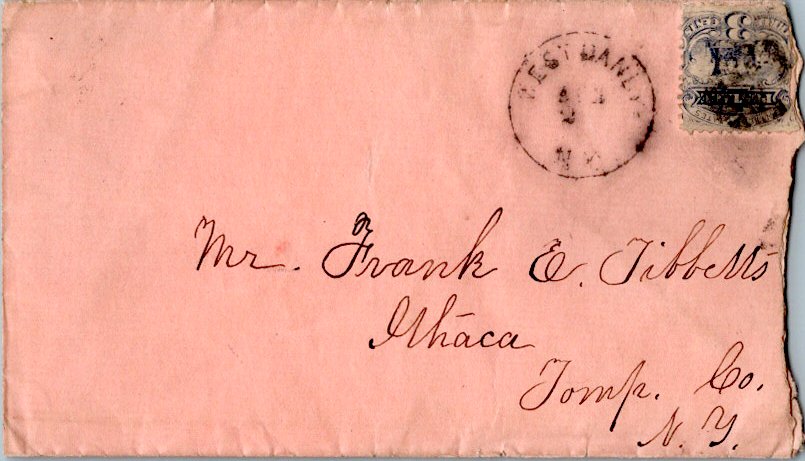 WEST DANBY
N.Y.
Mr. Frank E. Tibbetts
Ithaca
Tomp. Co.
N. Y.